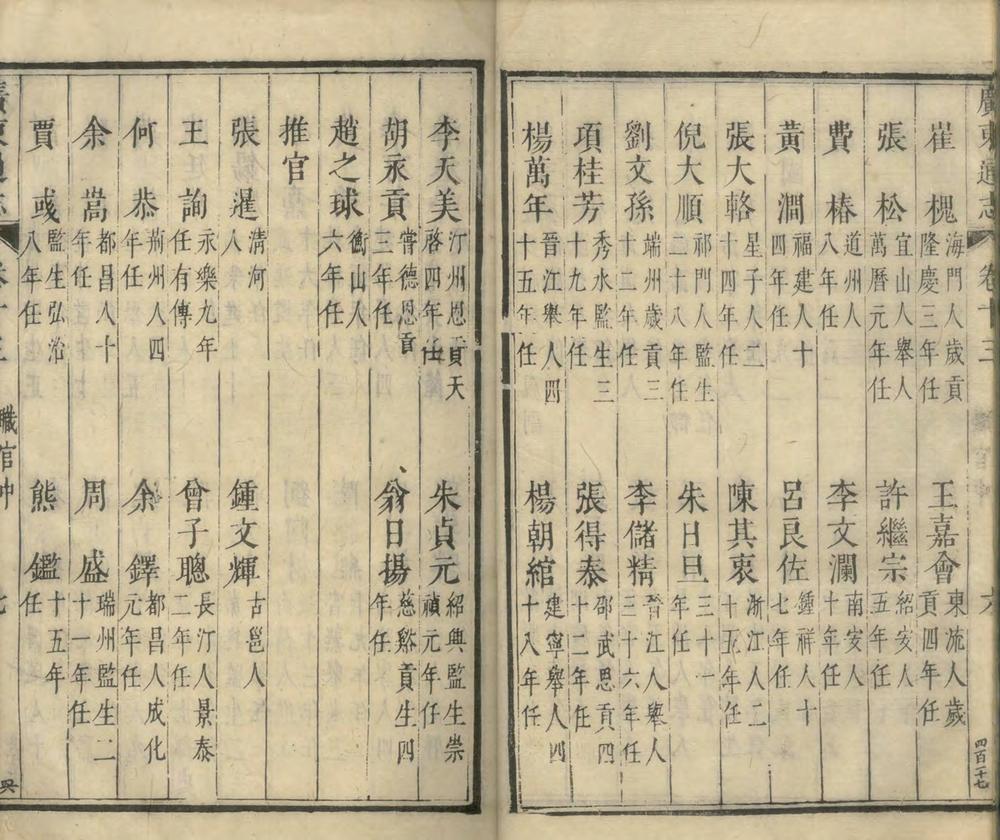 廣東通志 卷十三 六 四百二十七
崔槐 海門人歲貢隆慶三年任 王嘉會 東流人歲貢四年任
張松 宜山人舉人萬曆元年任 許繼宗 紹安人五年任
費椿 道州人八年任 李文瀾 南安人十年任
黃澗 福建人十四年任 呂良佐 鍾祥人十七年任
張大輅 星子人十四年任 陳其衷 浙江人二十五年任
倪大順 祁門人監生二十八年任 朱日旦 三十一年任
劉文孫 端州歲貢三十二年任 李儲精 晉江人舉人三十六年任
項桂芳 秀水監生三十九年任 張得泰 邵武恩貢四十二年任
楊萬年 晉江舉人四十五年任 楊朝綰 建寧舉人四十八年任
李天美 汀州恩貢天啓四年任 朱貞元 紹興監生崇禎元年任
胡永貢 常德恩音三年任 翁日揚 慈谿貢生四年任
趙之球 衡山人六年任
推官
張錫暹 清河人 鍾文輝 古邕人
王詢 永樂九年任有傳 曾子聰 長汀人景泰二年任
何恭 荊州人四年任 余鐸 都昌人成化元年任
余嵩 都昌人十年任 周盛 瑞州監生二十一年任
賈彧 監生弘治八年任 熊鑑 十五年任
廣東通志 卷十三 職官中 七